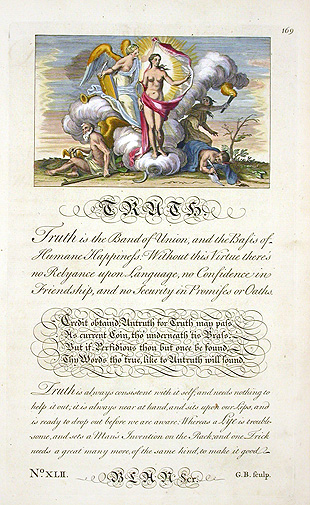 169
TRUTH.
Truth is the Band of Union, and the Basis of
Humane Happiness: Without this Virtue there's
no Relyance upon Language, no Confidence in
Friendship, and no Security in Promises or Oaths.
Credit obtain'd, Untruth for Truth may pass
As current Coin, tho' underneath tis Brass:
But if Perfidious thou but once be found,
Thy Words tho' true, like to Untruth will sound.
Truth is always consistent with it self, and needs nothing to
help it out; it is always near at hand, and sits upon our Lips, and
is ready to drop out before we are aware: Whereas a Lye is trouble-
some, and sets a Mans Invention on the Rack; and one Trick
needs a great many more, of the same kind, to make it good.
No. XLII. BLAND Scr. G.B. sculp.